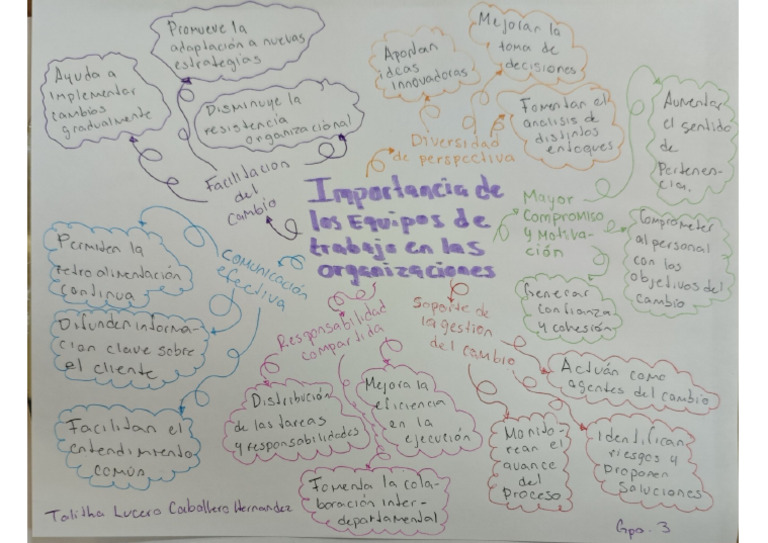 Importancia de
los Equipos de
trabajo en las
organizaciones
Facilitación
del
cambio
Ayuda a
implementar
cambios
gradualmente
Promueve la
adaptación a nuevas
estrategias
Disminuye la
resistencia
organizacional
Diversidad
de perspectiva
Aportan
ideas
innovadoras
Mejorar la
toma de
decisiones
Fomentan el
análisis de
distintos
enfoques
Mayor
Compromiso
y Motiva-
ción
Aumentar
el sentido
de
Pertenen-
cia.
Comprometer
al personal
con los
objetivos del
cambio
Generar
confianza
y cohesión
Comunicación
efectiva
Permiten la
retroalimentación
continua
Difunden informa-
cion clave sobre
el cliente
Facilitan el
entendimiento
común
Responsabilidad
compartida
Distribución
de las tareas
y responsabilidades
Mejora la
eficiencia
en la
ejecución
Fomenta la cola-
boración inter-
departamental
Soporte de
la gestion
del cambio
Actuán como
agentes del cambio
Identifican
riesgos y
Proponen
Soluciones
Monito-
rean el
avance
del
Proceso
Talitha Lucero Caballero Hernandez
Gpo. 3